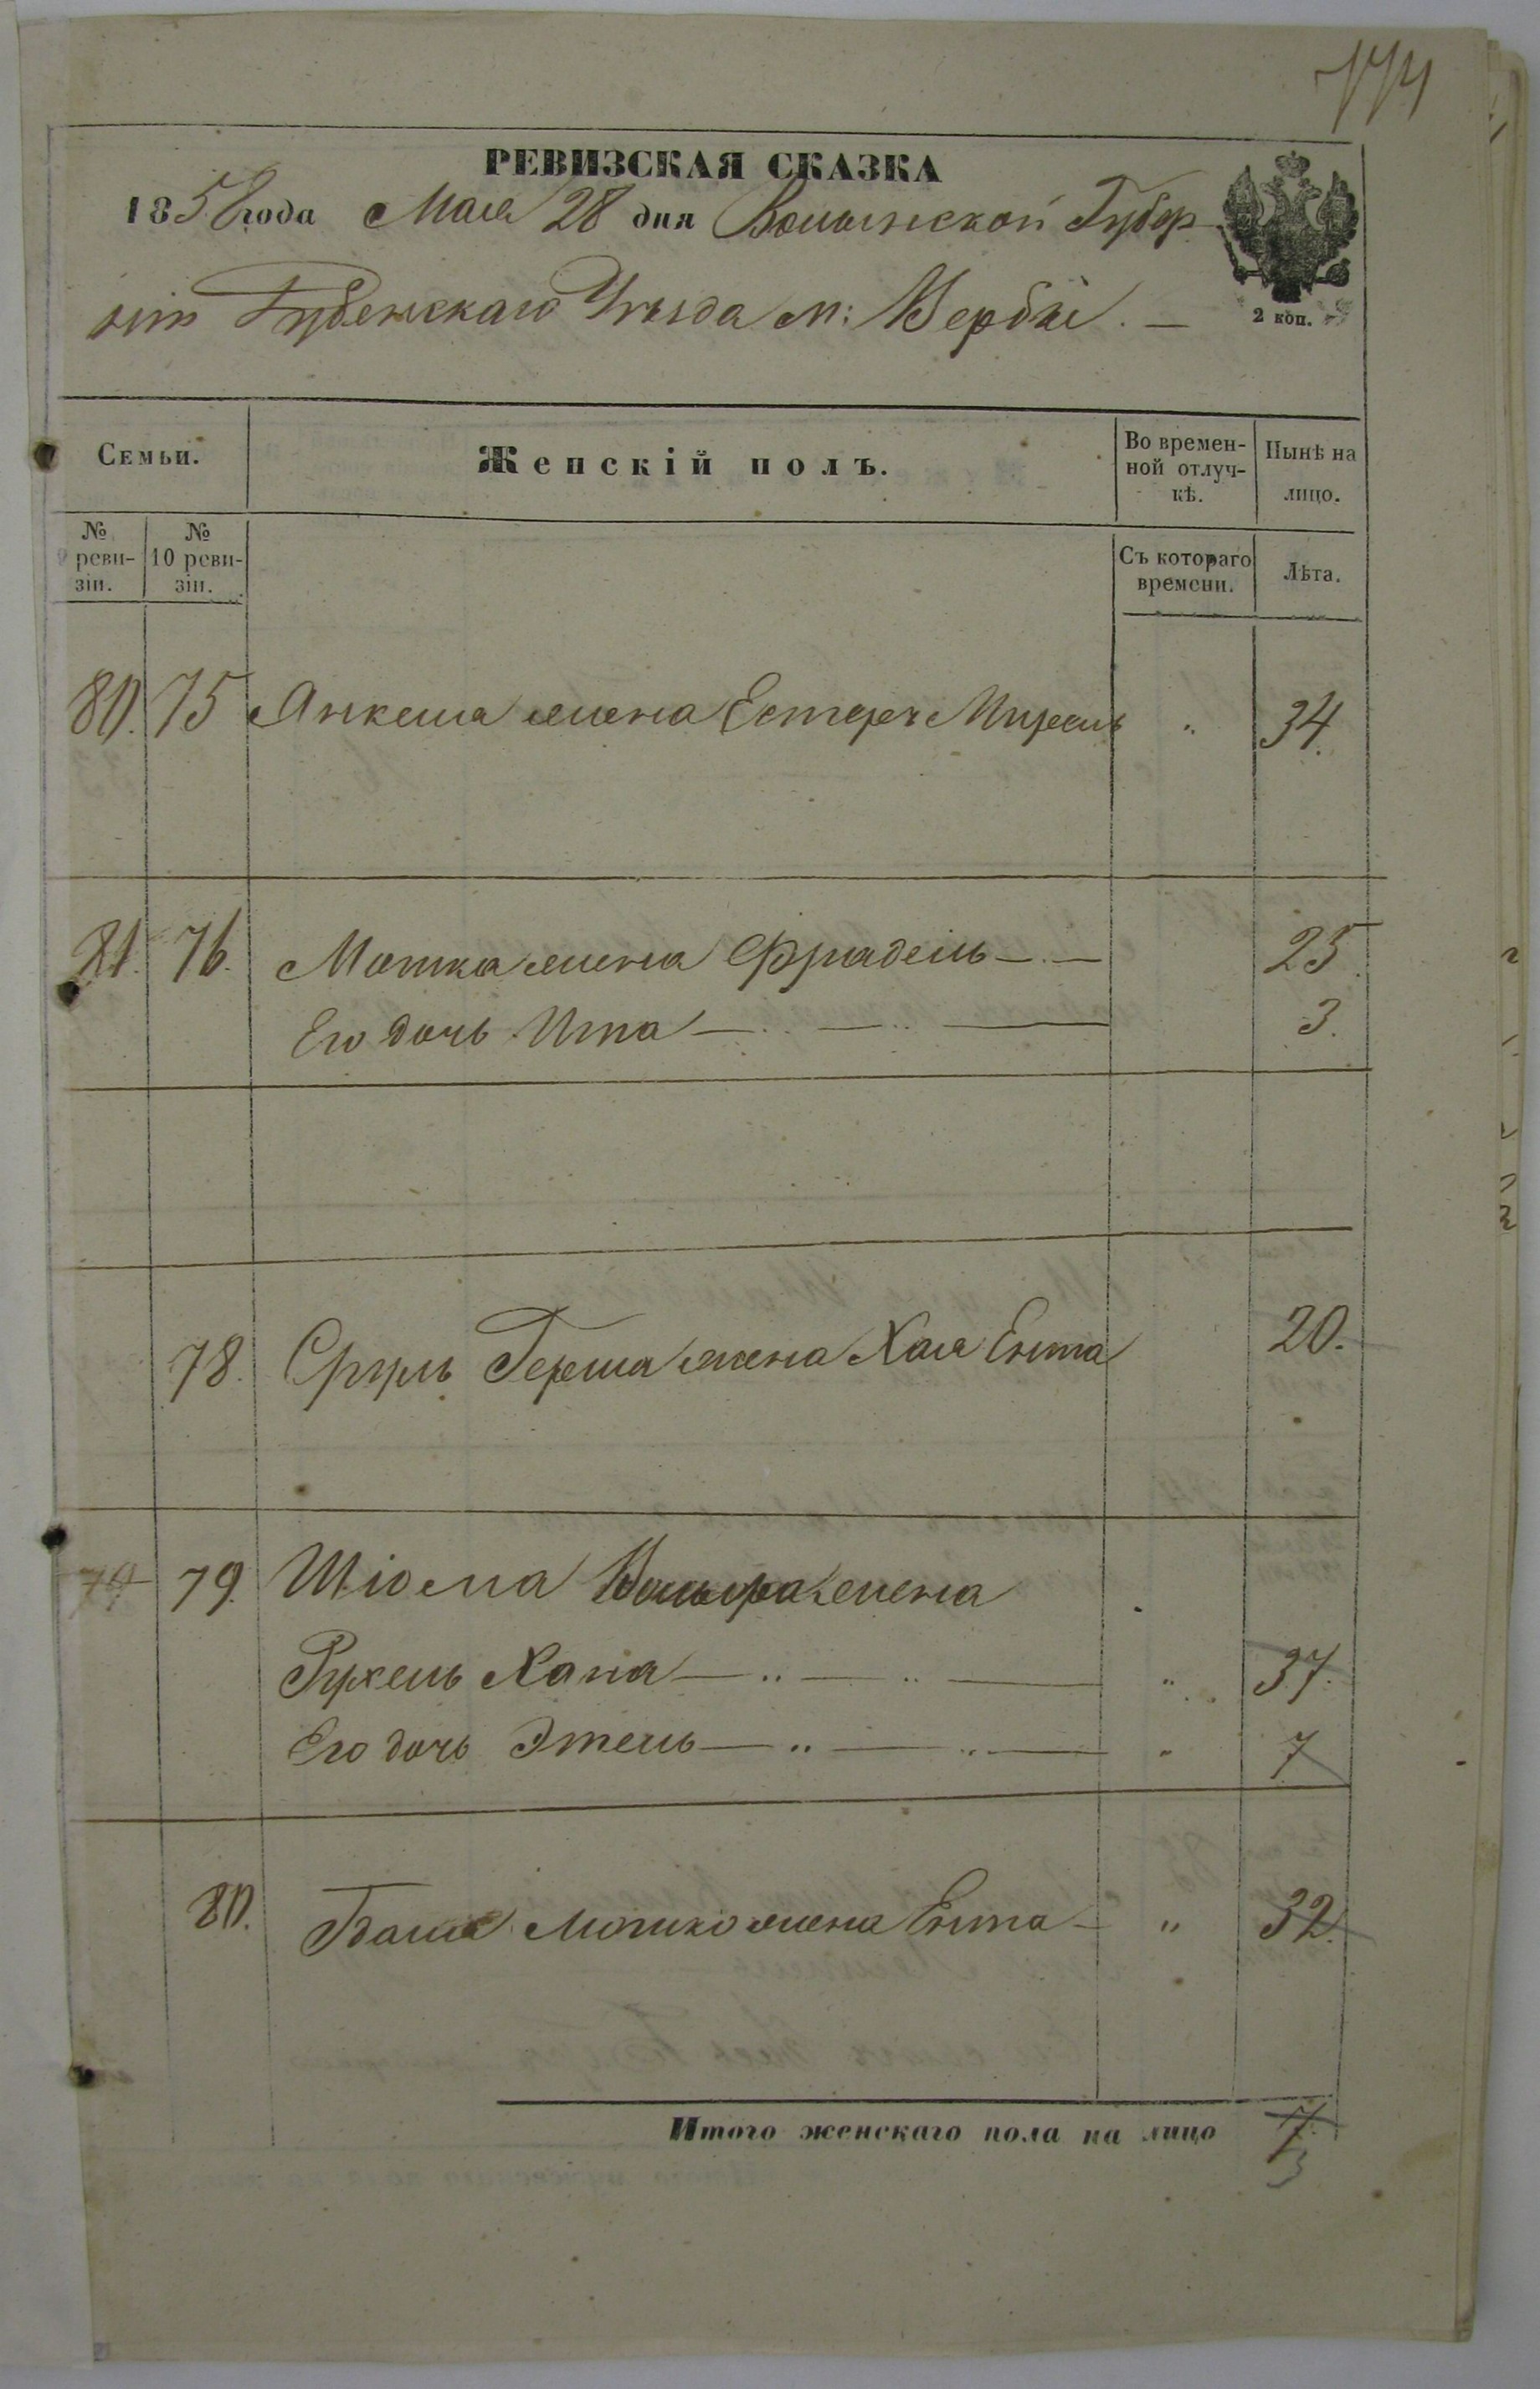 174
РЕВИЗСКАЯ СКАЗКА
1858 года Мая 28 дня Волынской Губер
ніи Дубенскаго Уѣзда м: Вербы. —
2 коп.
Семьи.
Женскій полъ.
Во времен-
ной отлуч-
кѣ.
Нынѣ на
лицо.
№
реви-
зіи.
№
10 реви-
зіи.
Съ котораго
времени.
Лѣта.
80. 75 Янкеля жена Естеръ Мирель " 34.
81. 76. Мошка жена Фрадель — . — 25.
Его дочь Ита — .. — .. — 3.
78. Сруль Герша жена Хая Ента 20.
79 79. Шіома Вольфа жена
Рухель Хана — .. — .. — " 37.
Его дочь Этель — .. — .. — " 7
80. Мошко жена Ента — " 32.
Итого женскаго пола на лицо 7
3